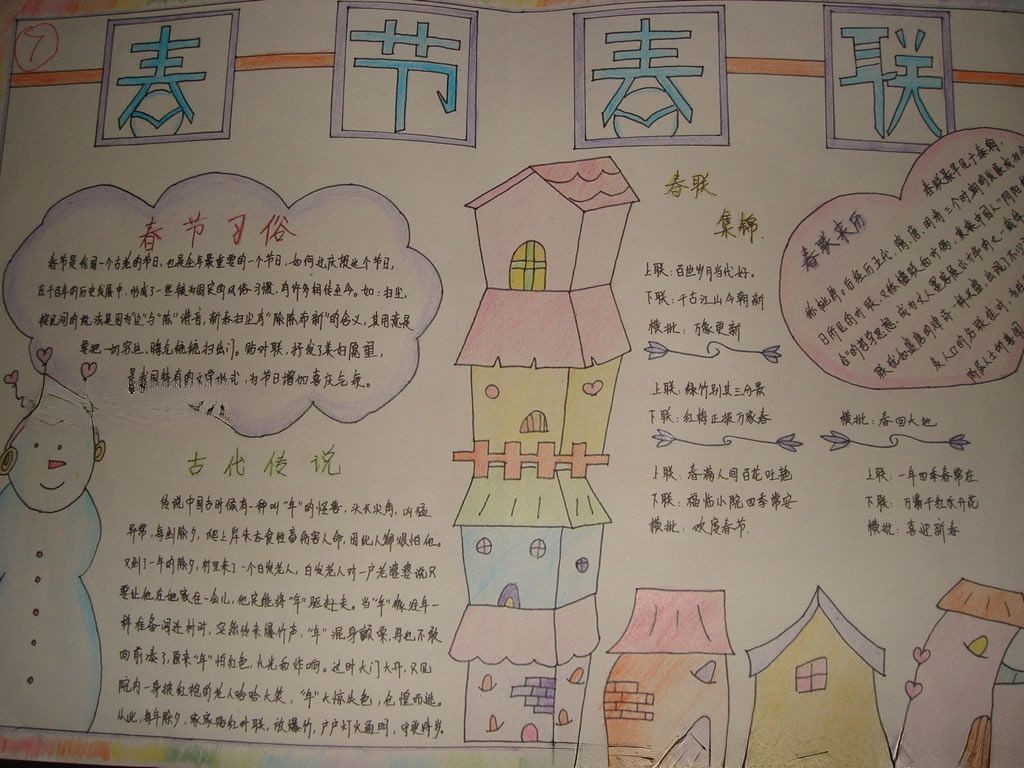 7
春节春联
春节习俗
春节是我国一个古老的节日,也是全年最重要的一个节日,如何过庆祝这个节日,
在千百年的历史发展中,形成了一些较为固定的风俗习惯,有许多相传至今。如:扫尘,
按民间的说法是因为"尘"与"陈"谐音,新春扫尘有"除陈布新"的含义,其用意是
要把一切穷运,晦气统统扫出门。贴对联,抒发了美好愿望,
是我国特有的文学形式,为节日增加喜庆气氛。
古代传说
传说中国古时侯有一种叫"年"的怪兽,头长尖角,凶猛
异常,每到除夕,爬上岸来吞食牲畜伤害人命,因此人都恨怕他。
又到了一年的除夕,村里来了一个白发老人,白发老人对一户老婆婆说只
要让他在她家住一会儿,他定能将"年"驱赶走。当"年"像往年一
样准备闯进村时,突然传来爆竹声,"年"混身颤栗,再也不敢
向前凑了,原来"年"怕红色,火光和炸响。这时大门大开,只见
院内一身披红袍的老人哈哈大笑,"年"大惊失色,仓惶而逃。
从此,每年除夕,家家贴红对联,放爆竹,户户灯火通明,守更待岁。
春联
集锦
上联:百世岁月当代好。
下联:千古江山今朝新
横批:万象更新
上联:绿竹别其三分景
下联:红梅正报万家春
横批:春回大地
上联:春满人间百花吐艳
下联:福临小院四季常安
横批:欢度春节
上联:一年四季春常在
下联:万紫千红永开花
横批:喜迎新春
春联来历